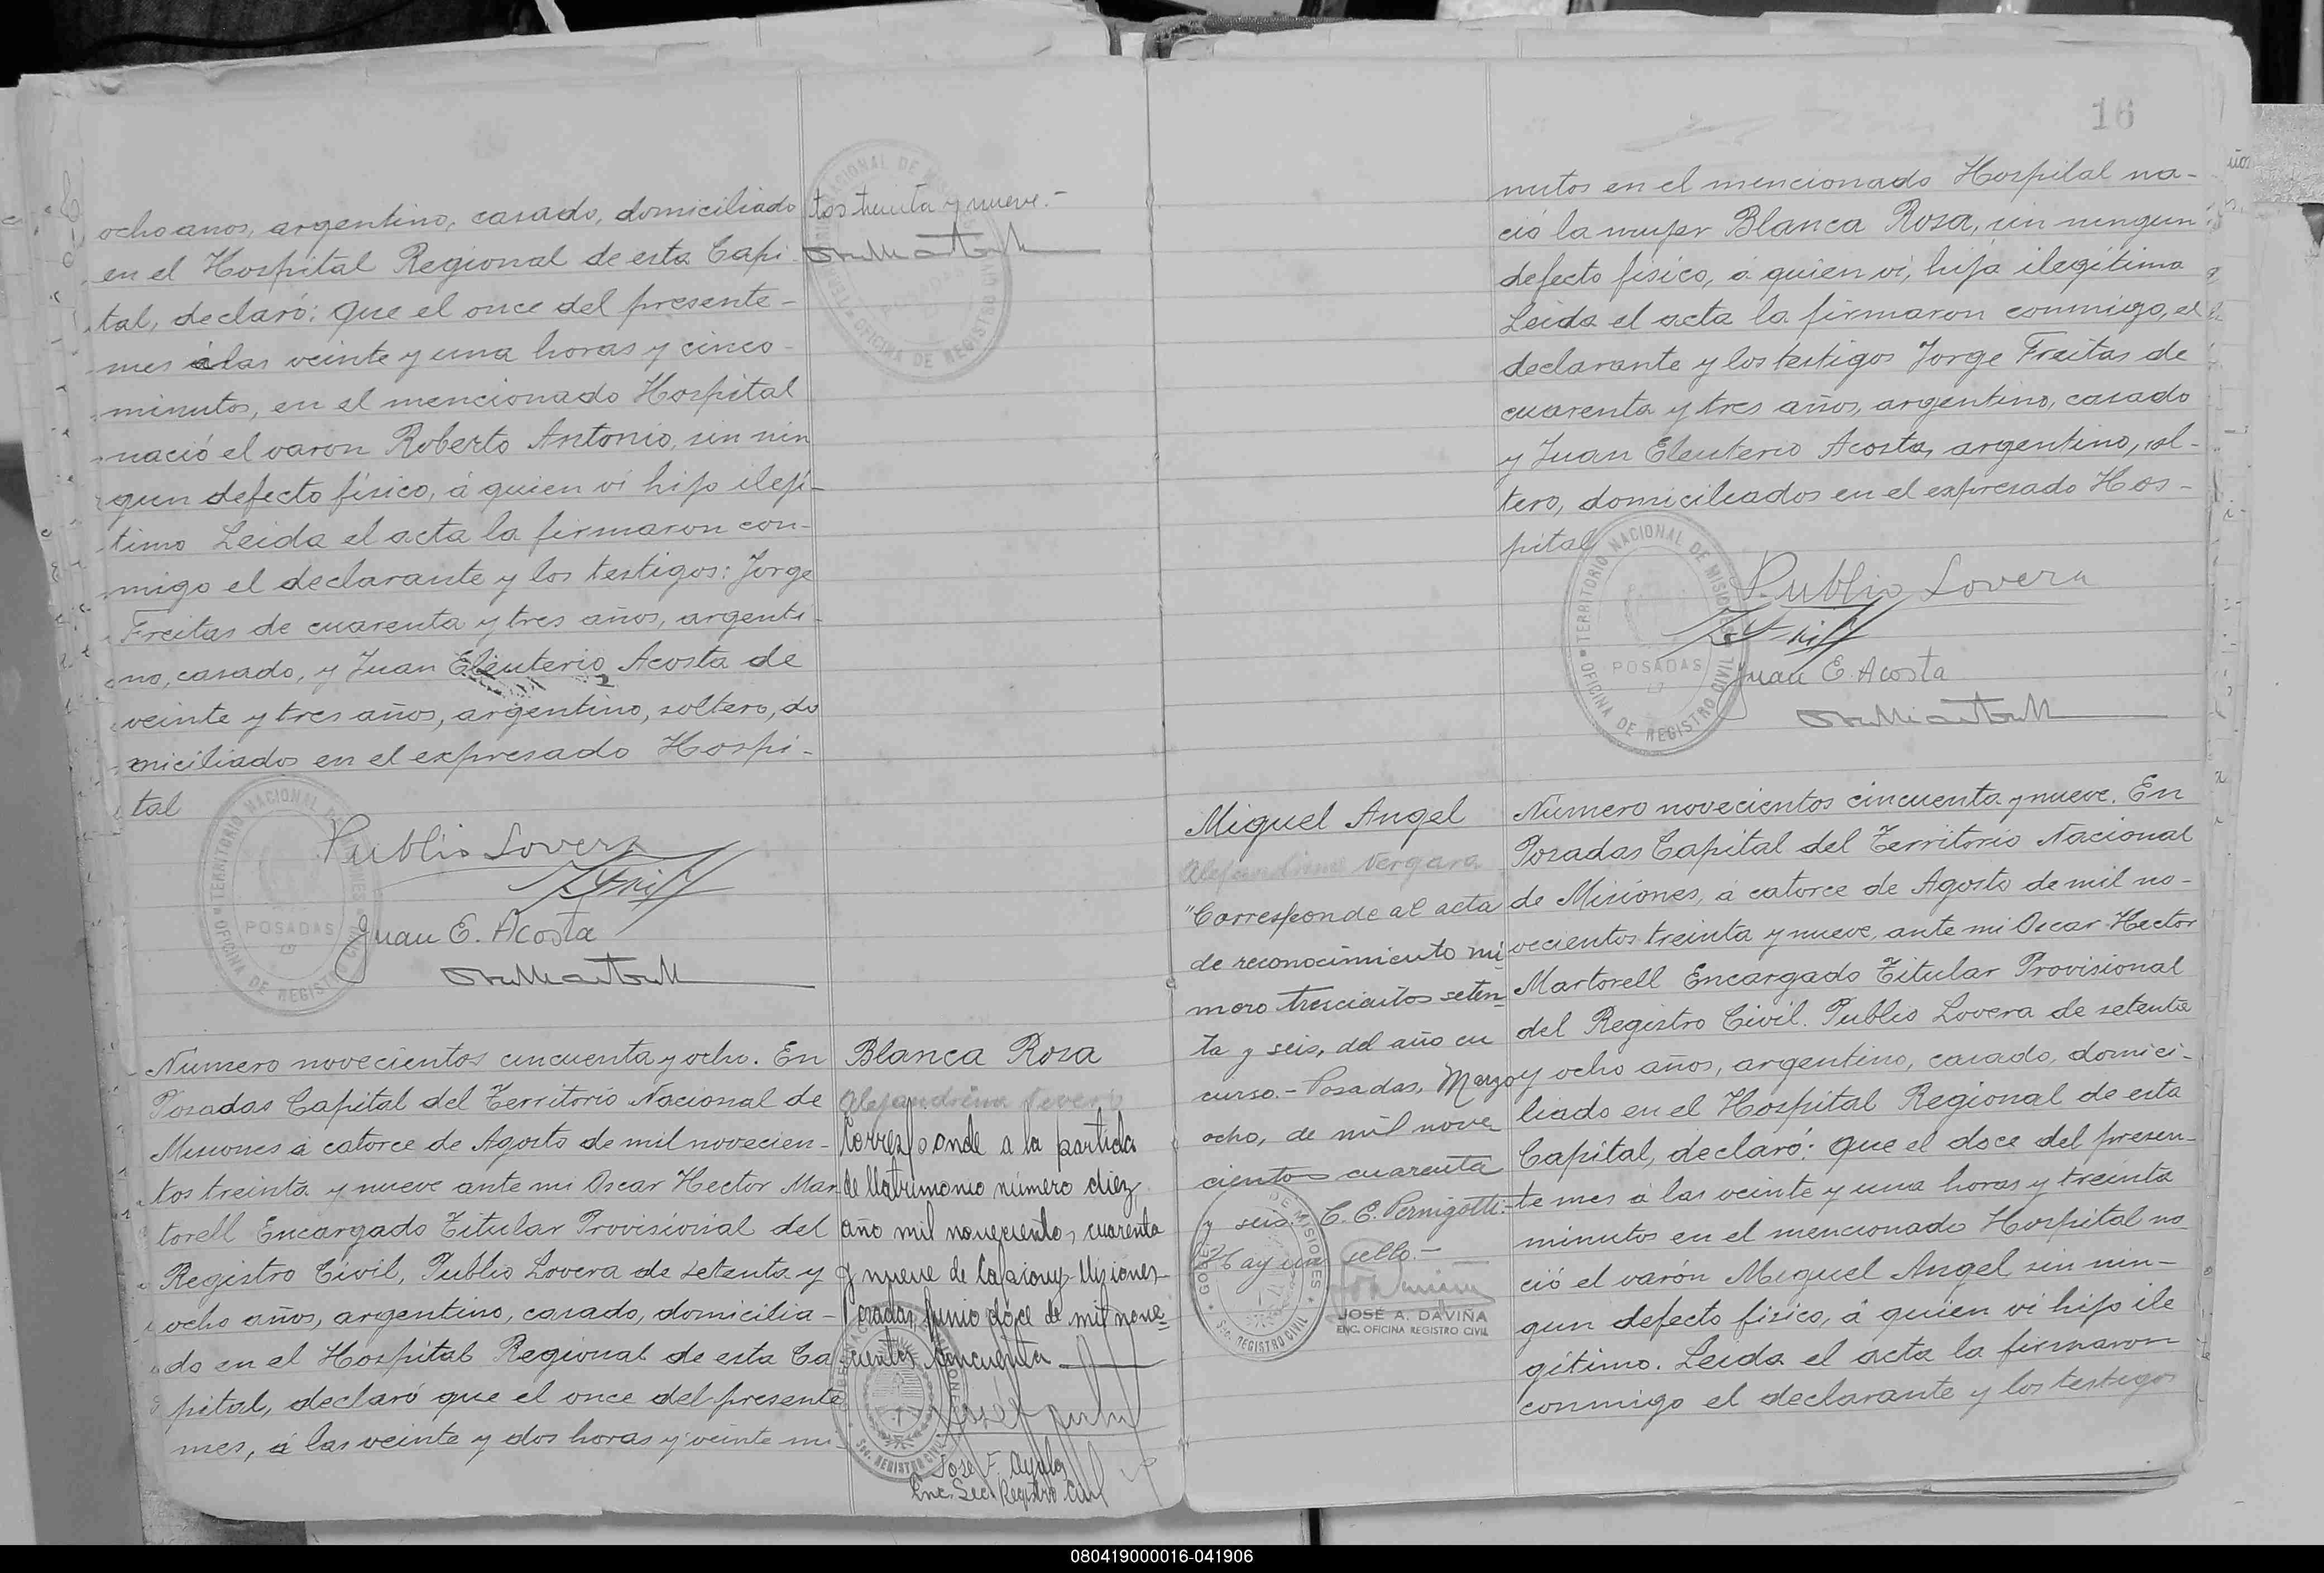 ocho años, argentino, casado, domiciliado
en el Hospital Regional de esta Capi
tal, declaró: que el once del presente-
mes á las veinte y una horas y cinco-
minutos, en el mencionado Hospital
nació el varon Roberto Antonio, sin nin
gun defecto físico, á quien vi hijo ilejí-
timo Leida el acta la firmaron con-
migo el declarante y los testigos: Jorge
Freitas de cuarenta y tres años, argenti-
no, casado, y Juan Eleuterio Acosta de
veinte y tres años, argentino, soltero, do
miciliados en el expresado Hospi-
tal
TERRITORIO NACIONAL DE MISIONES
POSADAS
OFICINA DE REGISTRO CIVIL
Publio Lovera
Juan E. Acosta
tos treinta y nueve.-
OFICINA DE REGISTRO
Número novecientos cincuenta y ocho. En
Posadas Capital del Territorio Nacional de
Misiones á catorce de Agosto de mil novecien-
tos treinta y nueve ante mi Oscar Hector Mar
torell Encargado Titular Provisional del
Registro Civil, Publio Lovera de setenta y
ocho años, argentino, casado, domicilia-
do en el Hospital Regional de esta Ca
pital, declaró que el once del presente
mes, á las veinte y dos horas y veinte mi
Blanca Rosa
Alejandrina
Corresponde a la partida
de Matrimonio número diez
año mil novecientos cuarenta
y nueve de Misiones
Posadas, Junio doce de mil nove=
cientos cincuenta
SEC. REGISTRO CIVIL
José F. Ayala
Enc. Sec. Registro Civil
16
nutos en el mencionado Hospital na-
ció la mujer Blanca Rosa, sin ningun
defecto físico, á quien vi, hija ilegítima
Leida el acta la firmaron conmigo, el
declarante y los testigos Jorge Freitas de
cuarenta y tres años, argentino, casado
y Juan Eleuterio Acosta, argentino, sol-
tero, domiciliados en el expresado Hos-
pital
TERRITORIO NACIONAL DE MISIONES
POSADAS
OFICINA DE REGISTRO CIVIL
Publio Lovera
Juan E. Acosta
Miguel Angel
Vergara
"Corresponde al acta
de reconocimiento nú
mero trescientos seten
ta y seis, del año en
curso.- Posadas, Marzo
ocho, de mil nove
cientos cuarenta
y seis. C. E. Pernigotti.-
Hay un sello.-
SEC. REGISTRO CIVIL
JOSÉ A. DAVIÑA
ENC. OFICINA REGISTRO CIVIL
Número novecientos cincuenta y nueve. En
Posadas Capital del Territorio Nacional
de Misiones, á catorce de Agosto de mil no-
vecientos treinta y nueve, ante mi Oscar Hector
Martorell Encargado Titular Provisional
del Registro Civil. Publio Lovera de setenta
y ocho años, argentino, casado, domici-
liado en el Hospital Regional de esta
Capital, declaró: que el doce del presen-
te mes á las veinte y una horas y treinta
minutos en el mencionado Hospital na
ció el varón Miguel Angel sin nin-
gun defecto físico, á quien vi hijo ile
gítimo. Leida el acta la firmaron
conmigo el declarante y los testigos
080419000016-041906